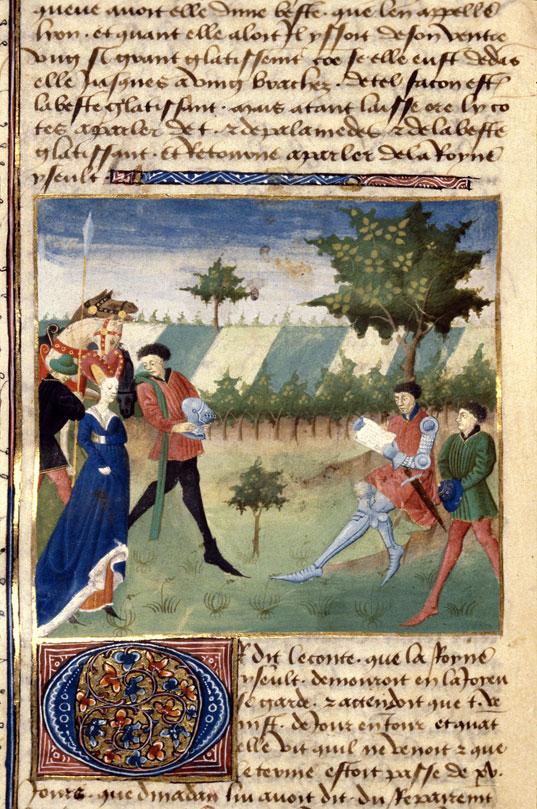 queue avoit elle dune beste que len appelle
lyon · et quant elle aloit Il yssoit de son ventre
vng si grant glatissemt coe se elle eust dedās
elle jusques a vingt brachez · de tel facon est
la beste glatissant · mais atant laisse ore ly cō
tes a parler de · t · 2 de palamedes 2 de la beste
glatissant · et Retourne a parler de la Royne
yseult ·
Or dit le conte · que la Royne
yseult · demouroit en la Joyeu
se garde · 2 actendoit que · t · ve
nist · de Jour en Jour et quāt
elle vit quil ne venoit 2 que
le terme estoit passe de xv ·
Jours · que dinadan luy avoit dit · du Repairemt